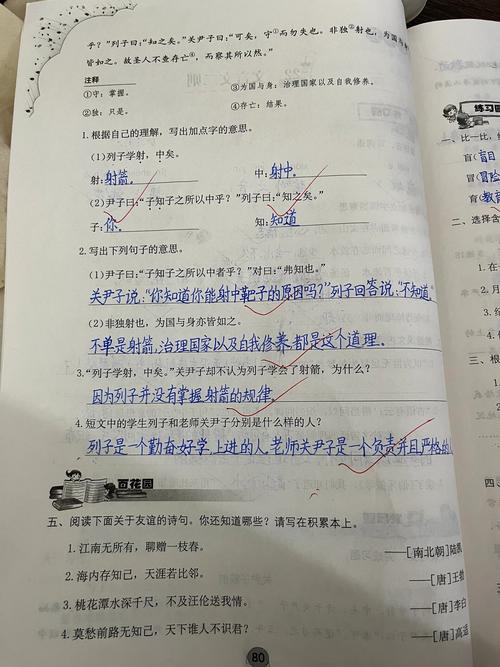 乎？”列子曰：“知之矣。”关尹子曰：“可矣，守①而勿失也。非独②射也，为国与身
皆如之。故圣人不查存亡④，而察其所以然。”
注释
①守：掌握。 ③为国与身：治理国家以及自我修养。
②独：只是。 ④存亡：结果。
1.根据自己的理解，写出加点字的意思。
(1)列子学射，中矣。
射：射箭。 中：射中。
(2)尹子曰：“子知子之所以中乎？”列子曰：“知之矣。”
子：你。 知：知道
2.写出下列句子的意思。
(1)尹子曰：“子知子之所以中者乎？”对曰：“弗知也。”
关尹子说，“你知道你能射中靶子的原因吗？”列子回答说，“不知道。
(2)非独射也，为国与身亦皆如之。
不单是射箭，治理国家以及自我修养，都是这个道理。
3.“列子学射，中矣。”关尹子却不认为列子学会了射箭，为什么？
因为列子并没有掌握射箭的规律。
4.短文中的学生列子和老师关尹子分别是什么样的人？
列子是一个勤奋好学，上进的人，老师关尹子是一个负责并且严格的
百花园
五、阅读下面关于友谊的诗句。你还知道哪些？请写在积累本上。
1.江南无所有，聊赠一枝春。
——[南北朝]陆凯
2.海内存知己，天涯若比邻。
——[唐]王勃
3.桃花潭水深千尺，不及汪伦送我情。
——[唐]李白
4.莫愁前路无知己，天下谁人不识君？
——[唐]高适
80
练习园
一、比一比，
盲(盲目
冒(冒险
教育
二、选择